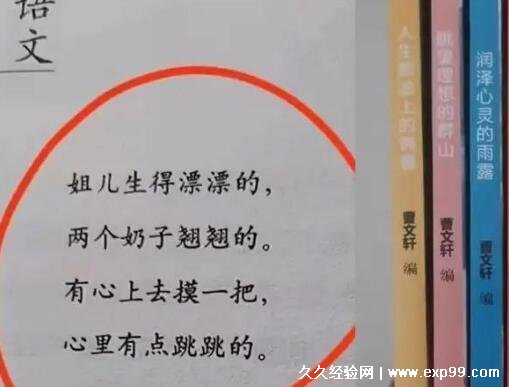 语文
姐儿生得漂漂的，
两个奶子翘翘的。
有心上去摸一把，
心里有点跳跳的。
曹文轩 编
眺望理想的群山
曹文轩 编
润泽心灵的雨露
曹文轩 编
久久经验网 | www.exp99.com